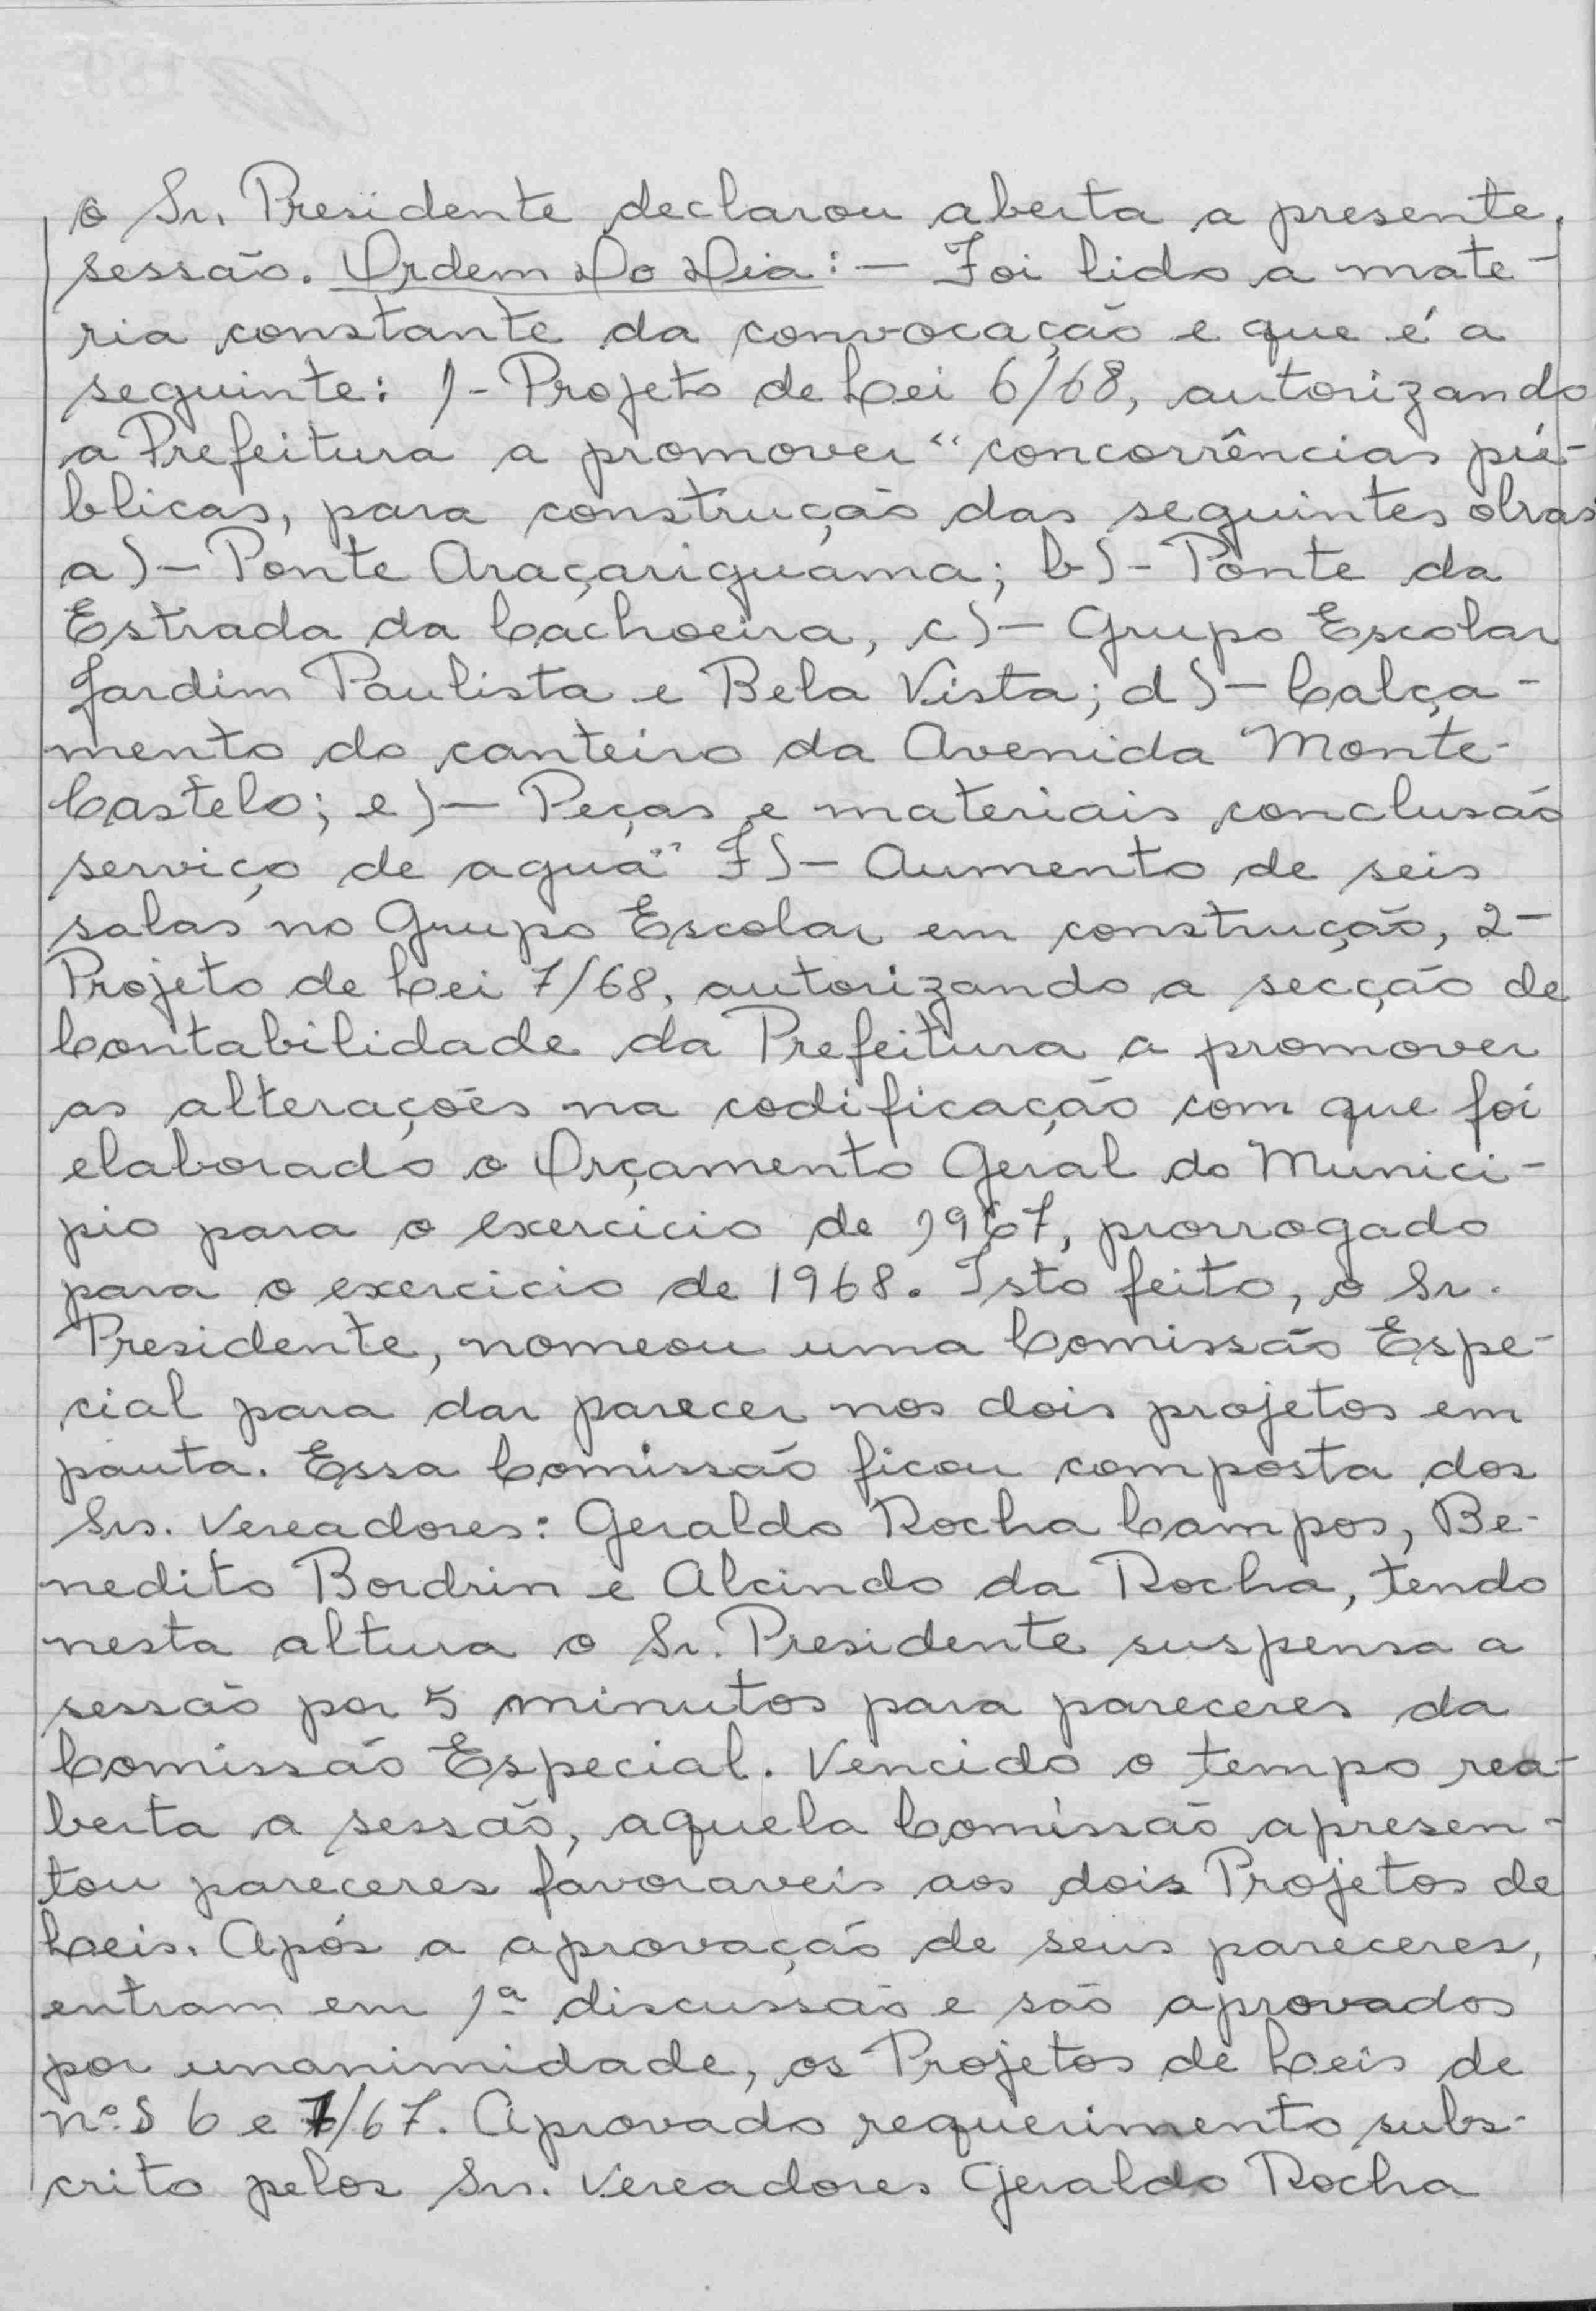 o Sr. Presidente declarou aberta a presente
sessão. Ordem Do Dia: — Foi lido a mate-
ria constante da convocação e que é a
seguinte: 1- Projeto de Lei 6/68, autorizando
a Prefeitura a promover "concorrências pú-
blicas, para construção das seguintes obras
a) — Ponte Araçariguama; b) - Ponte da
Estrada da Cachoeira, c) — Grupo Escolar
Jardim Paulista e Bela Vista; d) — Calça-
mento do canteiro da Avenida Monte-
Castelo; e) — Peças e materiais conclusão
serviço de agua" F) — Aumento de seis
salas no Grupo Escolar em construção, 2-
Projeto de Lei 7/68, autorizando a secção de
Contabilidade da Prefeitura a promover
as alterações na codificação com que foi
elaborado o Orçamento Geral do Munici-
pio para o exercicio de 1967, prorrogado
para o exercicio de 1968. Isto feito, o Sr.
Presidente, nomeou uma Comissão Espe-
cial para dar parecer nos dois projetos em
pauta. Essa Comissão ficou composta dos
Srs. Vereadores: Geraldo Rocha Campos, Be-
nedito Bordrin e Alcindo da Rocha, tendo
nesta altura o Sr. Presidente suspensa a
sessão por 5 minutos para pareceres da
Comissão Especial. Vencido o tempo rea-
berta a sessão, aquela Comissão apresen-
tou pareceres favoraveis aos dois Projetos de
Leis. Após a aprovação de seus pareceres,
entram em 1ª discussão e são aprovados
por unanimidade, os Projetos de Leis de
nºs 6 e 7/67. Aprovado requerimento subs-
crito pelos Srs. Vereadores Geraldo Rocha